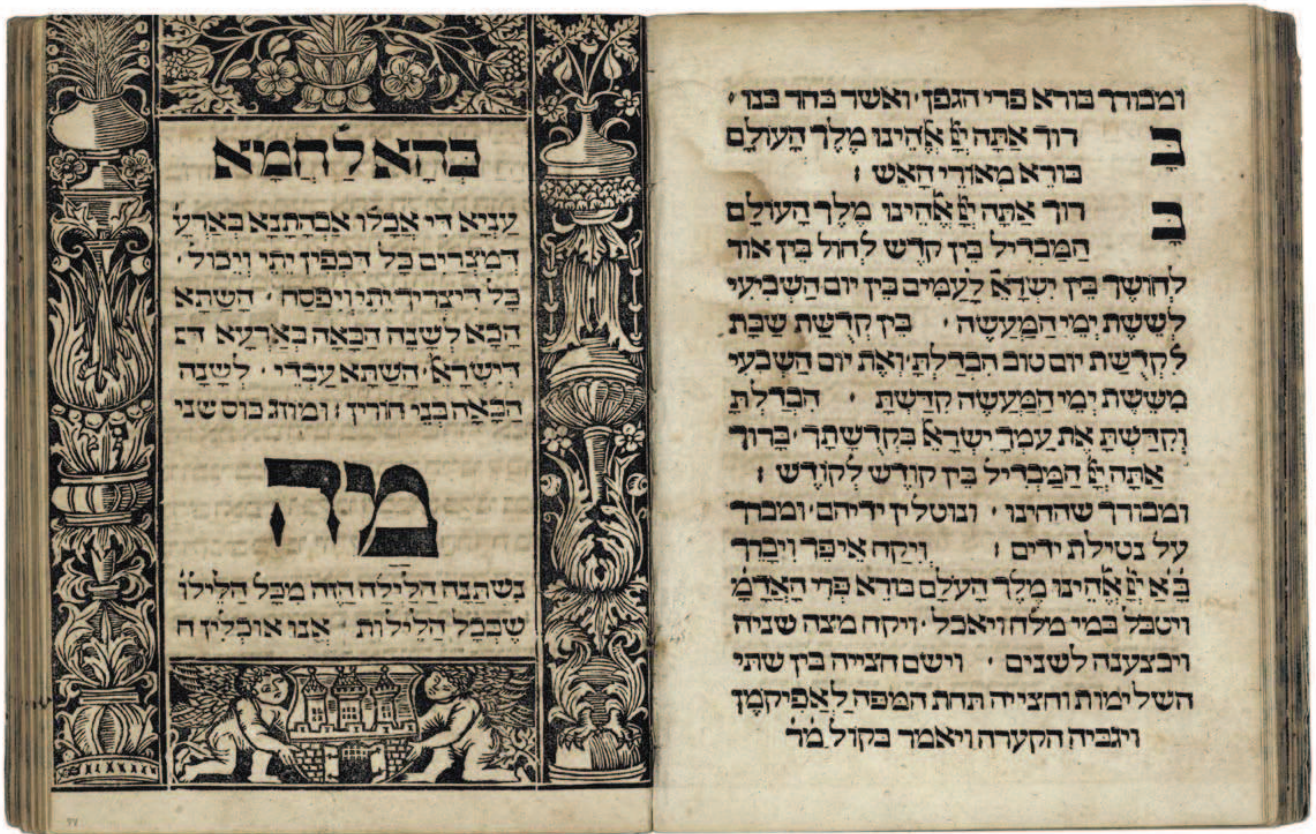 ומבורך בורא פרי הגפן · ואשר בחר בנו ·
ב רוך אתה ייָ אלהינו מלך העולם
בורא מאורי האש :
ב רוך אתה ייָ אלהינו מלך העולם
המבדיל בין קדש לחול בין אור
לחושך בין ישראל לעמים בין יום השביעי
לששת ימי המעשה · בין קדושת שבת
לקדושת יום טוב הבדלת · ואת יום השבעי
מששת ימי המעשה קדשת · הבדלת
וקדשת את עמך ישראל בקדושתך · ברוך
אתה ייָ המבדיל בין קודש לקודש :
ומבורך שהחינו · ונוטלין ידיהם · ומברך
על נטילת ידים : ויקח איפך ויברך
בא ייָ אלהינו מלך העולם בורא פרי האדמ
ויטבל במי מלח ויאכל · ויקח מצה שניה
ויבצענה לשנים · וישם חצייה בין שתי
השלימות וחצייה תחת המפה לאפיקמן
ויגביה הקערה ויאמר בקול רם
כהא לחמא
עניא די אכלו אבהתנא בארע
דמצרים כל דכפין יתי ויכול ·
כל דיצריך יתי ויפסח · השתא
הכא לשנה הבאה בארעא דת
דישראל · השתא עבדי · לשנה
הבאה בני חורין : ומוזג כוס שני
מה
נשתנה הלילה הזה מכל הלילו
שבכל הלילות אנו אוכלין ח